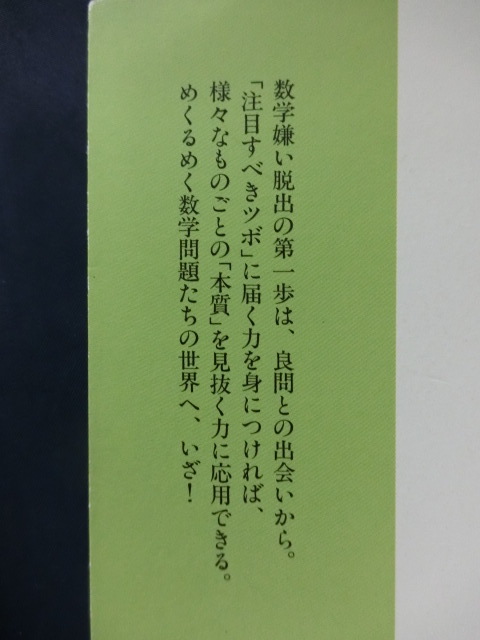 数学嫌い脱出の第一歩は、良問との出会いから。
「注目すべきツボ」に届く力を身につければ、
様々なものごとの「本質」を見抜く力に応用できる。
めくるめく数学問題たちの世界へ、いざ！